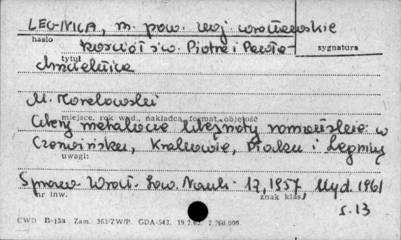 LEGNICA, m. pow. woj. wrocławskie
hasło
Kościół św. Piotra i Pawła - sygnatura
tytuł
chrzcielnica
M. Morelowski
miejsce, rok wyd., nakładca, format, objętość
Cztery metalowe zabytki romańskie: w
Czerwińsku, Krakowie, Płocku i Legnicy
uwagi:
Spraw. Wrocł. Tow. Nauk. 12, 1957 Wyd. 1961
nr inw. znak klas.
s. 13
CWD B-13a Zam. 361/ZW/P. GDA-543. 19.2.62. 2.760.000.